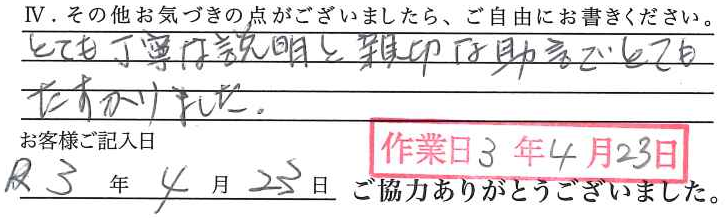 Ⅳ．その他お気づきの点がございましたら、ご自由にお書きください。
とても丁寧な説明と親切な助言でとても
たすかりました。
お客様ご記入日
作業日3年4月23日
R3年4月23日
ご協力ありがとうございました。